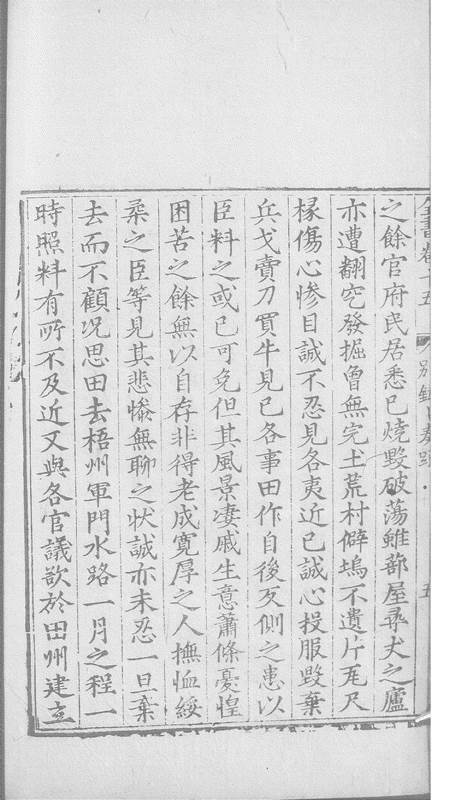 全書卷十五　別錄　奏疏　五
之餘官府民居悉已燒毀破蕩雖蔀屋尋丈之廬
亦遭翻穵發掘曾無完土荒村僻塢不遺片瓦尺
椽傷心慘目誠不忍見各夷近已誠心投服毀棄
兵戈賣刀買牛見已各事田作自後反側之患以
臣料之或已可免但其風景淒戚生意蕭條憂惶
困苦之餘無以自存非得老成寬厚之人撫恤綏
柔之臣等見其悲慘無聊之狀誠亦未忍一旦棄
去而不顧况思田去梧州軍門水路一月之程一
時照料有所不及近又與各官議欲於田州建立